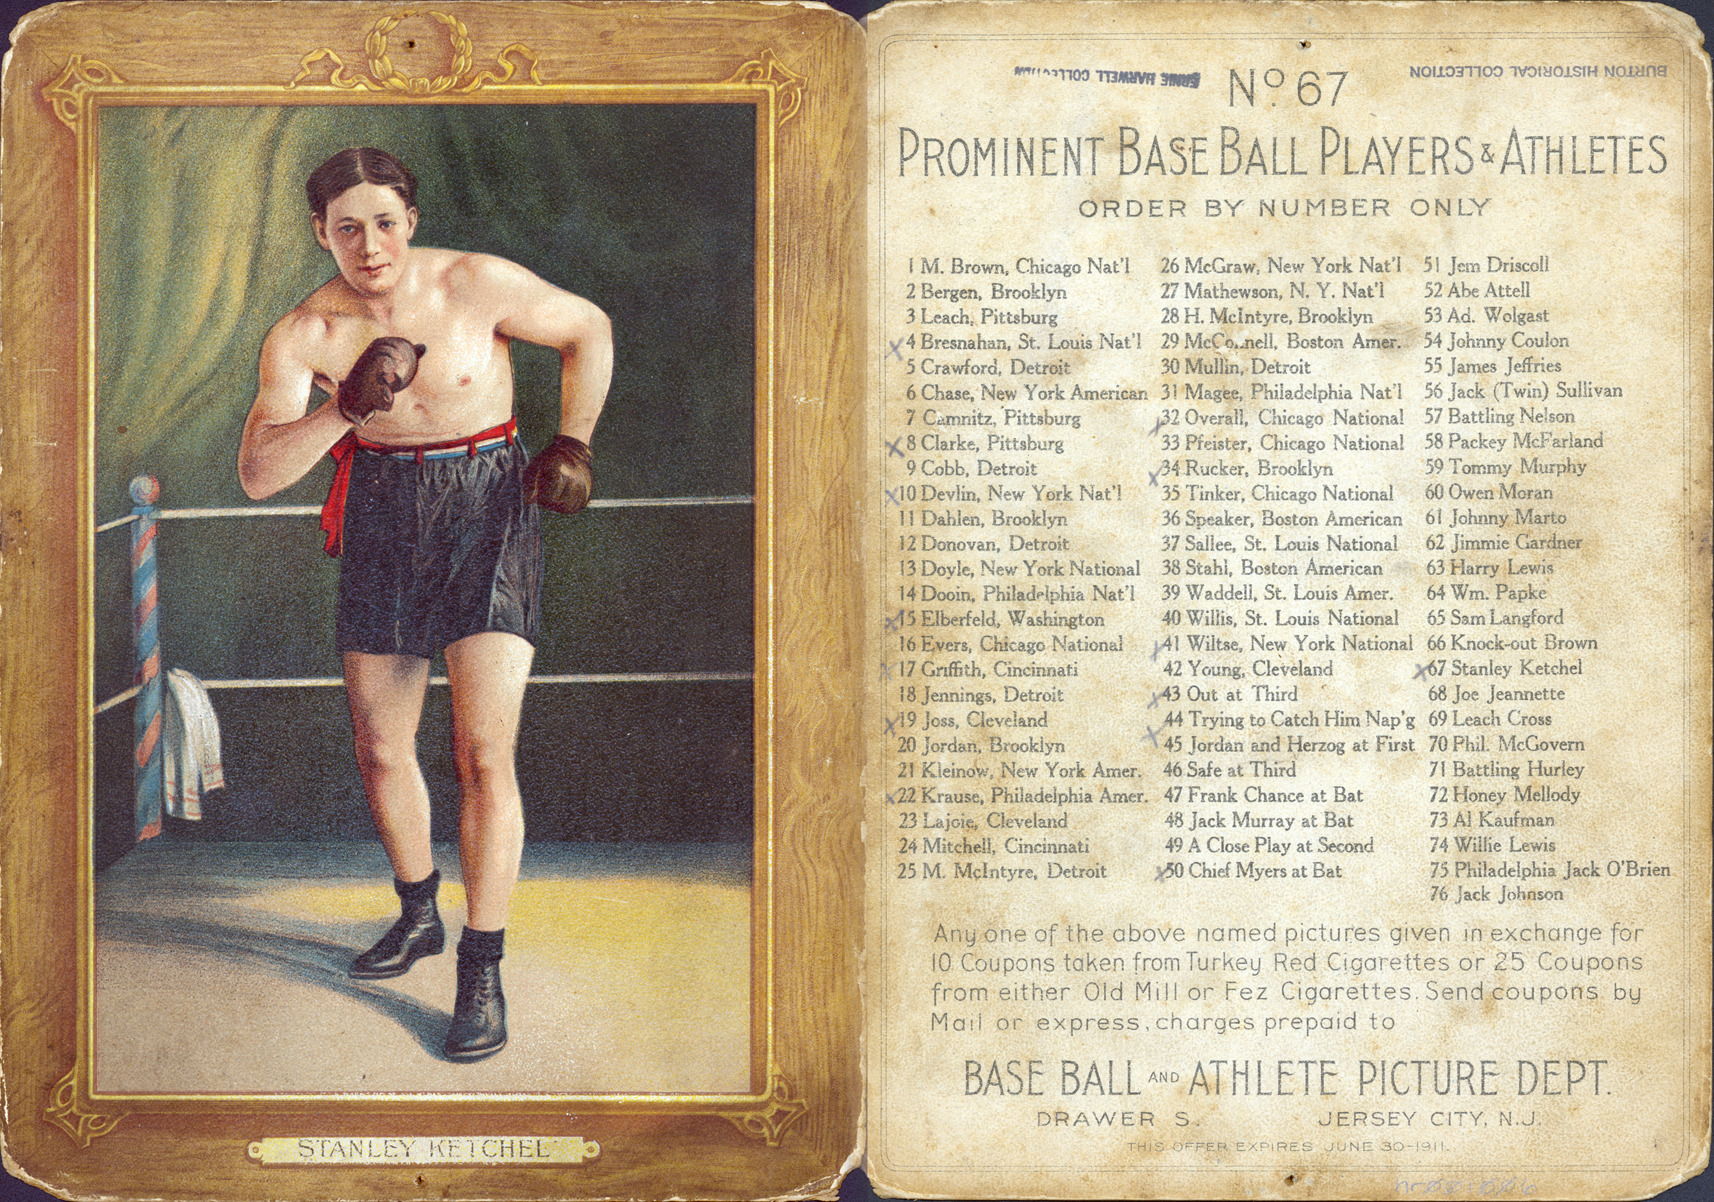 STANLEY KETCHEL
ERNIE HARWELL COLLECTION
BURTON HISTORICAL COLLECTION
Nº 67
PROMINENT BASE BALL PLAYERS & ATHLETES
ORDER BY NUMBER ONLY
1 M. Brown, Chicago Nat'l
2 Bergen, Brooklyn
3 Leach, Pittsburg
4 Bresnahan, St. Louis Nat'l
5 Crawford, Detroit
6 Chase, New York American
7 Camnitz, Pittsburg
8 Clarke, Pittsburg
9 Cobb, Detroit
10 Devlin, New York Nat'l
11 Dahlen, Brooklyn
12 Donovan, Detroit
13 Doyle, New York National
14 Dooin, Philadelphia Nat'l
15 Elberfeld, Washington
16 Evers, Chicago National
17 Griffith, Cincinnati
18 Jennings, Detroit
19 Joss, Cleveland
20 Jordan, Brooklyn
21 Kleinow, New York Amer.
22 Krause, Philadelphia Amer.
23 Lajoie, Cleveland
24 Mitchell, Cincinnati
25 M. McIntyre, Detroit
26 McGraw, New York Nat'l
27 Mathewson, N. Y. Nat'l
28 H. McIntyre, Brooklyn
29 McConnell, Boston Amer.
30 Mullin, Detroit
31 Magee, Philadelphia Nat'l
32 Overall, Chicago National
33 Pfeister, Chicago National
34 Rucker, Brooklyn
35 Tinker, Chicago National
36 Speaker, Boston American
37 Sallee, St. Louis National
38 Stahl, Boston American
39 Waddell, St. Louis Amer.
40 Willis, St. Louis National
41 Wiltse, New York National
42 Young, Cleveland
43 Out at Third
44 Trying to Catch Him Nap'g
45 Jordan and Herzog at First
46 Safe at Third
47 Frank Chance at Bat
48 Jack Murray at Bat
49 A Close Play at Second
50 Chief Myers at Bat
51 Jem Driscoll
52 Abe Attell
53 Ad. Wolgast
54 Johnny Coulon
55 James Jeffries
56 Jack (Twin) Sullivan
57 Battling Nelson
58 Packey McFarland
59 Tommy Murphy
60 Owen Moran
61 Johnny Marto
62 Jimmie Gardner
63 Harry Lewis
64 Wm. Papke
65 Sam Langford
66 Knock-out Brown
67 Stanley Ketchel
68 Joe Jeannette
69 Leach Cross
70 Phil. McGovern
71 Battling Hurley
72 Honey Mellody
73 Al Kaufman
74 Willie Lewis
75 Philadelphia Jack O'Brien
76 Jack Johnson
Any one of the above named pictures given in exchange for
10 Coupons taken from Turkey Red Cigarettes or 25 Coupons
from either Old Mill or Fez Cigarettes. Send coupons by
Mail or express, charges prepaid to
BASE BALL AND ATHLETE PICTURE DEPT.
DRAWER S. JERSEY CITY, N.J.
THIS OFFER EXPIRES JUNE 30-1911.